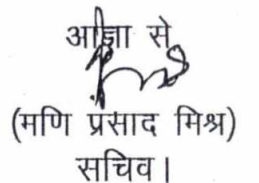 आज्ञा से
(मणि प्रसाद मिश्र)
सचिव।